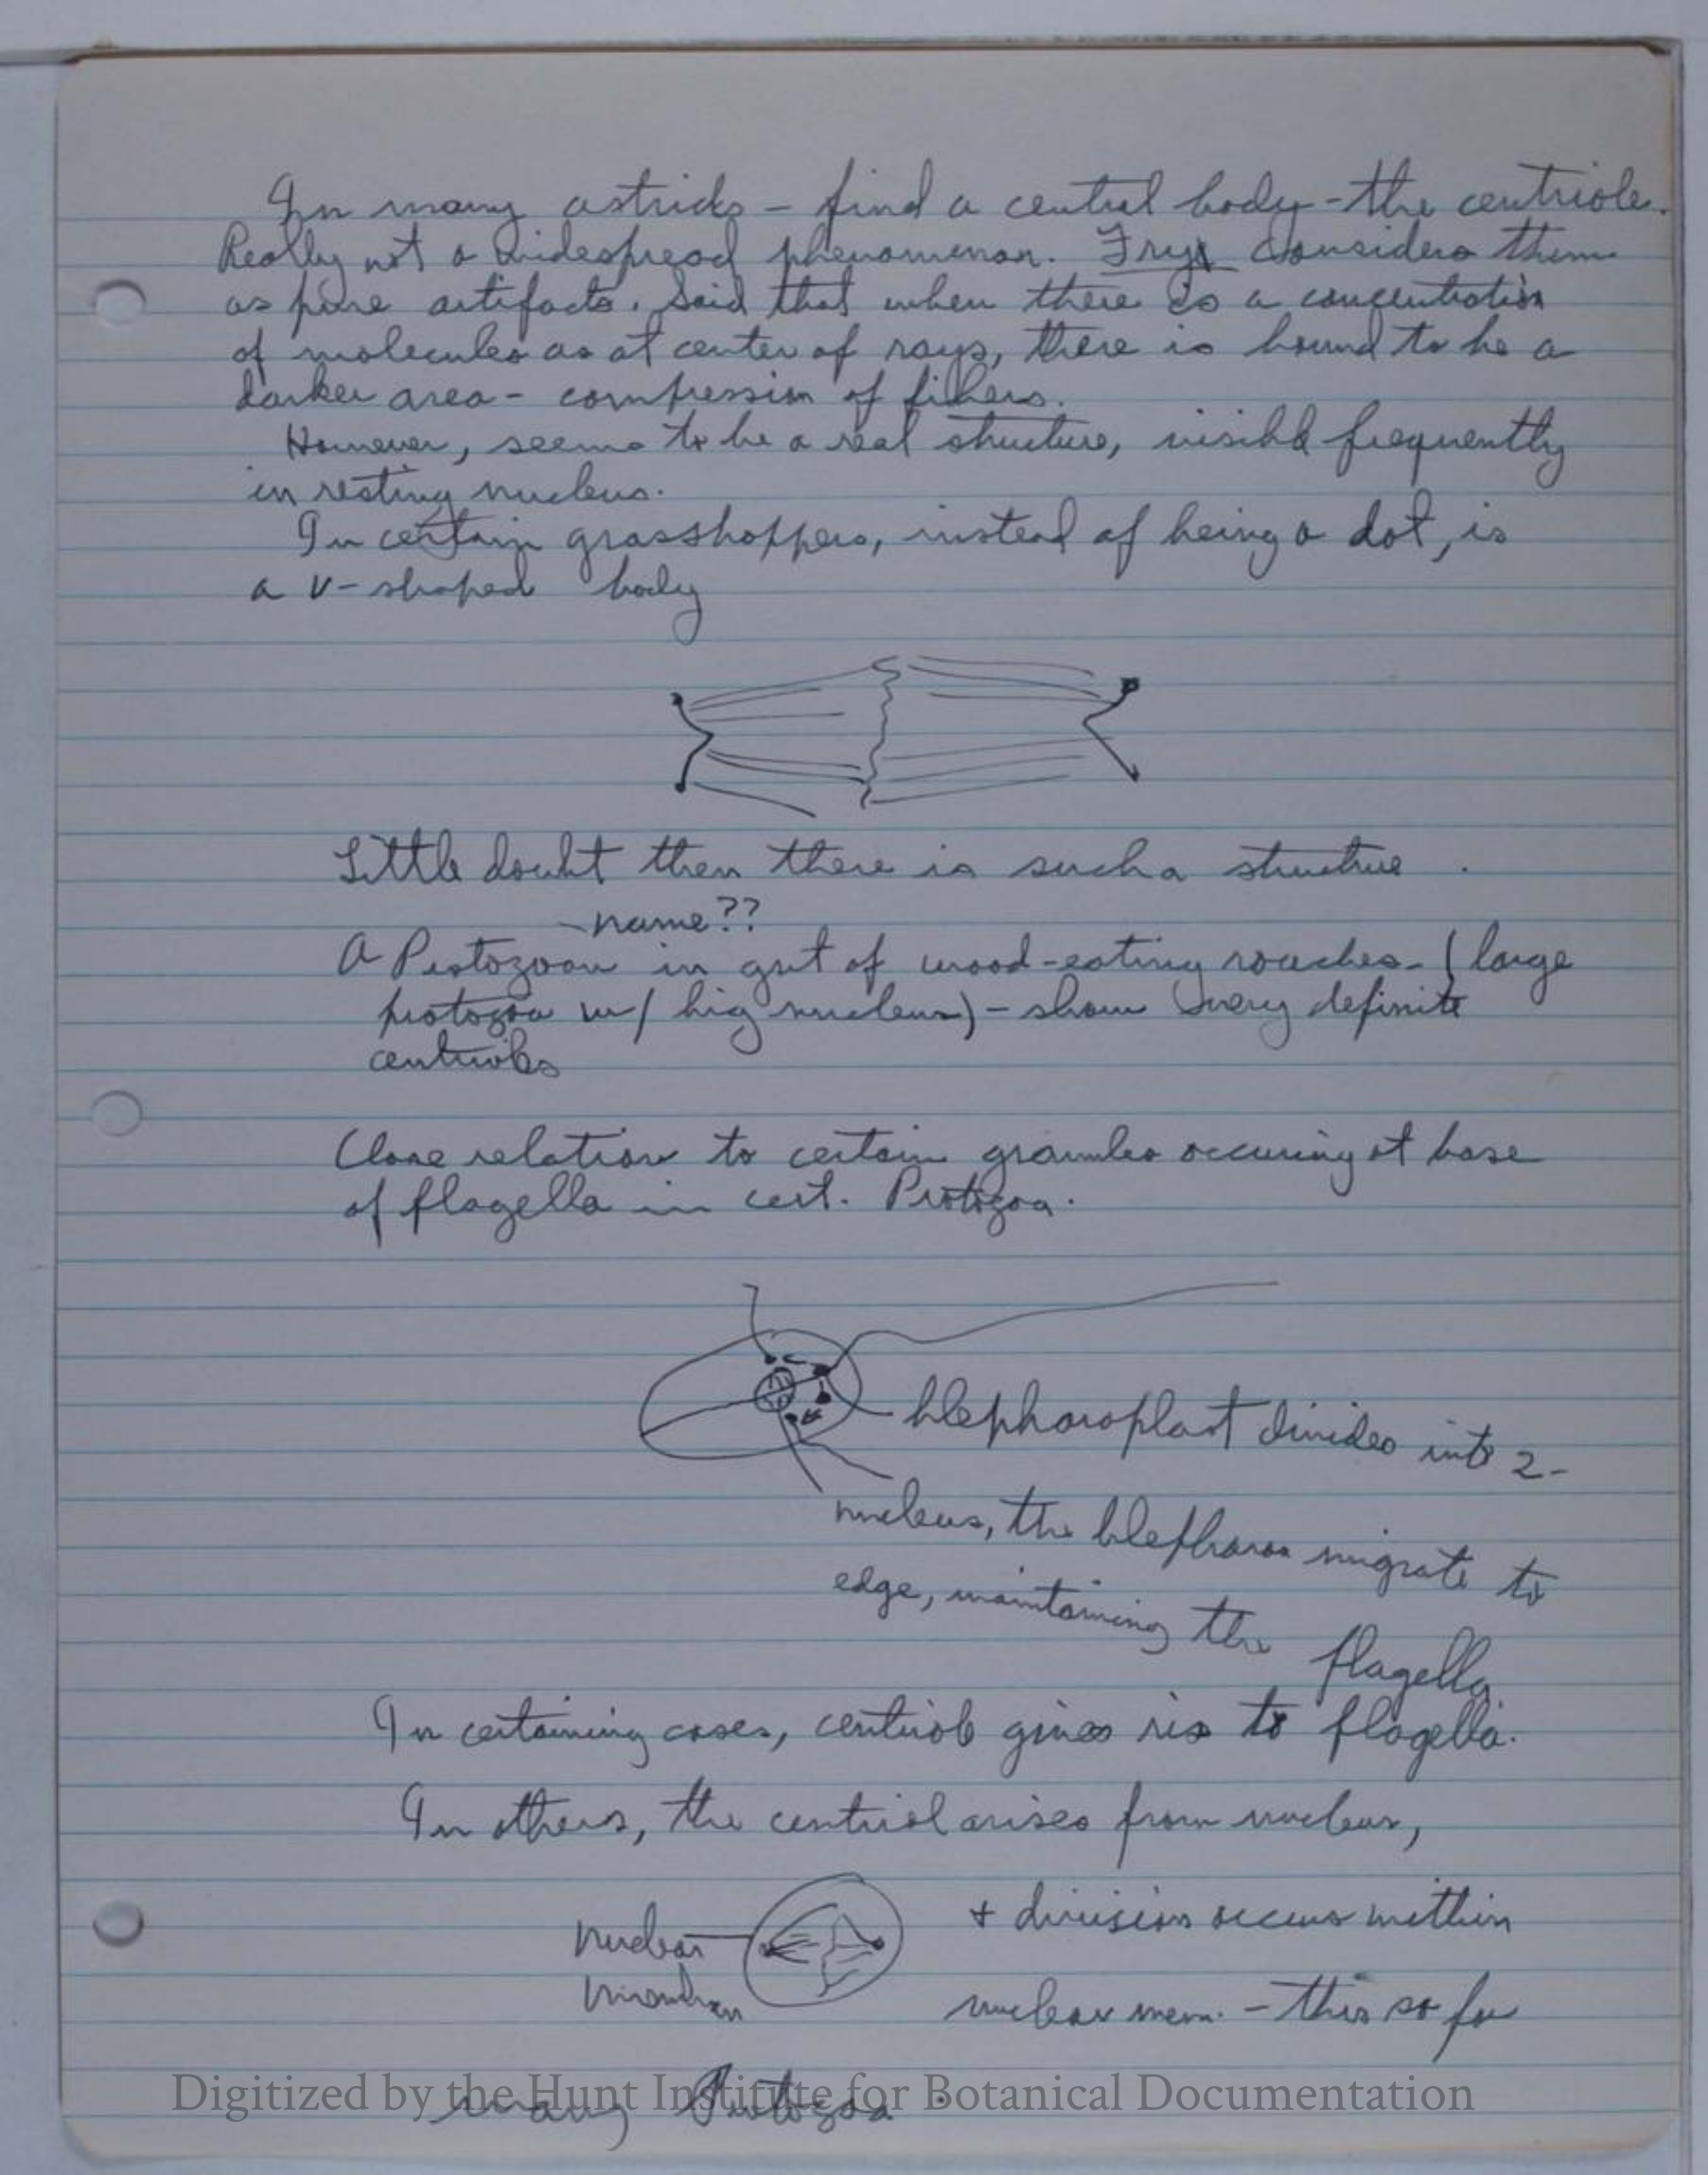 In many astrids - find a central body - the centriole.
Really not a widespread phenomenon. Frye considers them
as pure artifacts. Said that when there is a concentration
of molecules as at center of rays, there is bound to be a
darker area - compression of fibers.
However, seems to be a real structure, visible frequently
in resting nucleus.
In certain grasshoppers, instead of being a dot, is
a V-shaped body
Little doubt then there is such a structure.
name??
A Protozoan in gut of wood-eating roaches - (large
protozoa w/ big nucleus) - show very definite
centrioles
Close relation to certain granules occuring at base
of flagella in cert. Protozoa.
blepharoplast divides into 2 -
nucleus, the blepharos migrate to
edge, maintaining the flagella
In certaining cases, centriole gives rise to flagella.
In others, the centriol arises from nucleus,
+ division occurs within
nuclear
membran
nuclear mem. - this so for
many Protozoa.
Digitized by the Hunt Institute for Botanical Documentation